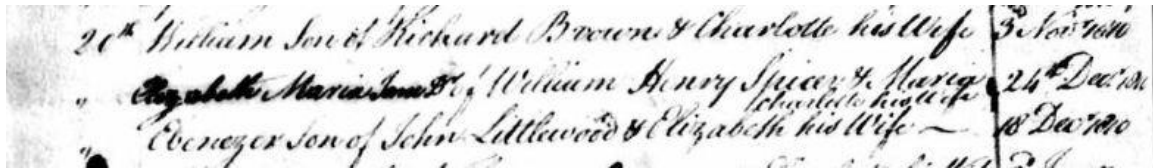 20th William Son of Richard Brown & Charlotte his Wife 3d Novr 1810
" Elizabeth Maria Jane Dr of William Henry Spicer & Maria 24th Decr 1810
Charlotte his Wife
" Ebenezer Son of John Littlewood & Elizabeth his Wife — 18 Decr 1810